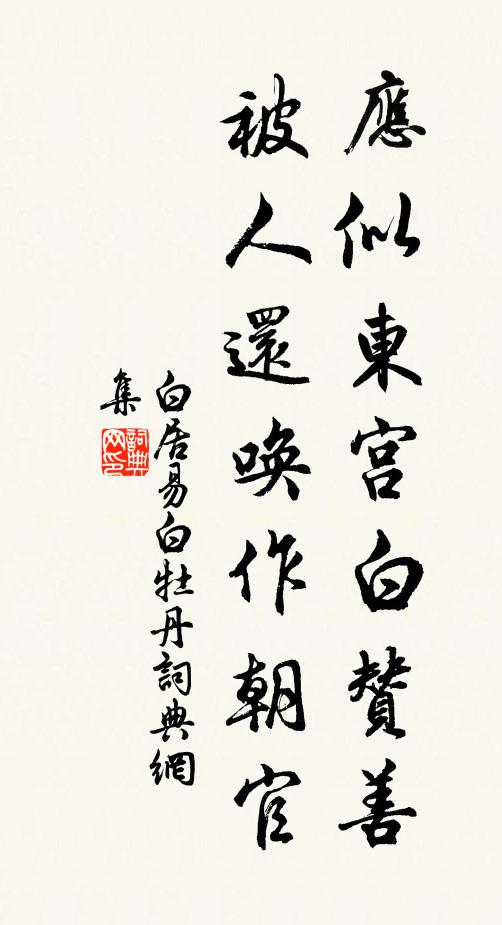 應似東宮白贊善
被人還喚作朝官
白居易白牡丹詞典網
集
詞典
网印